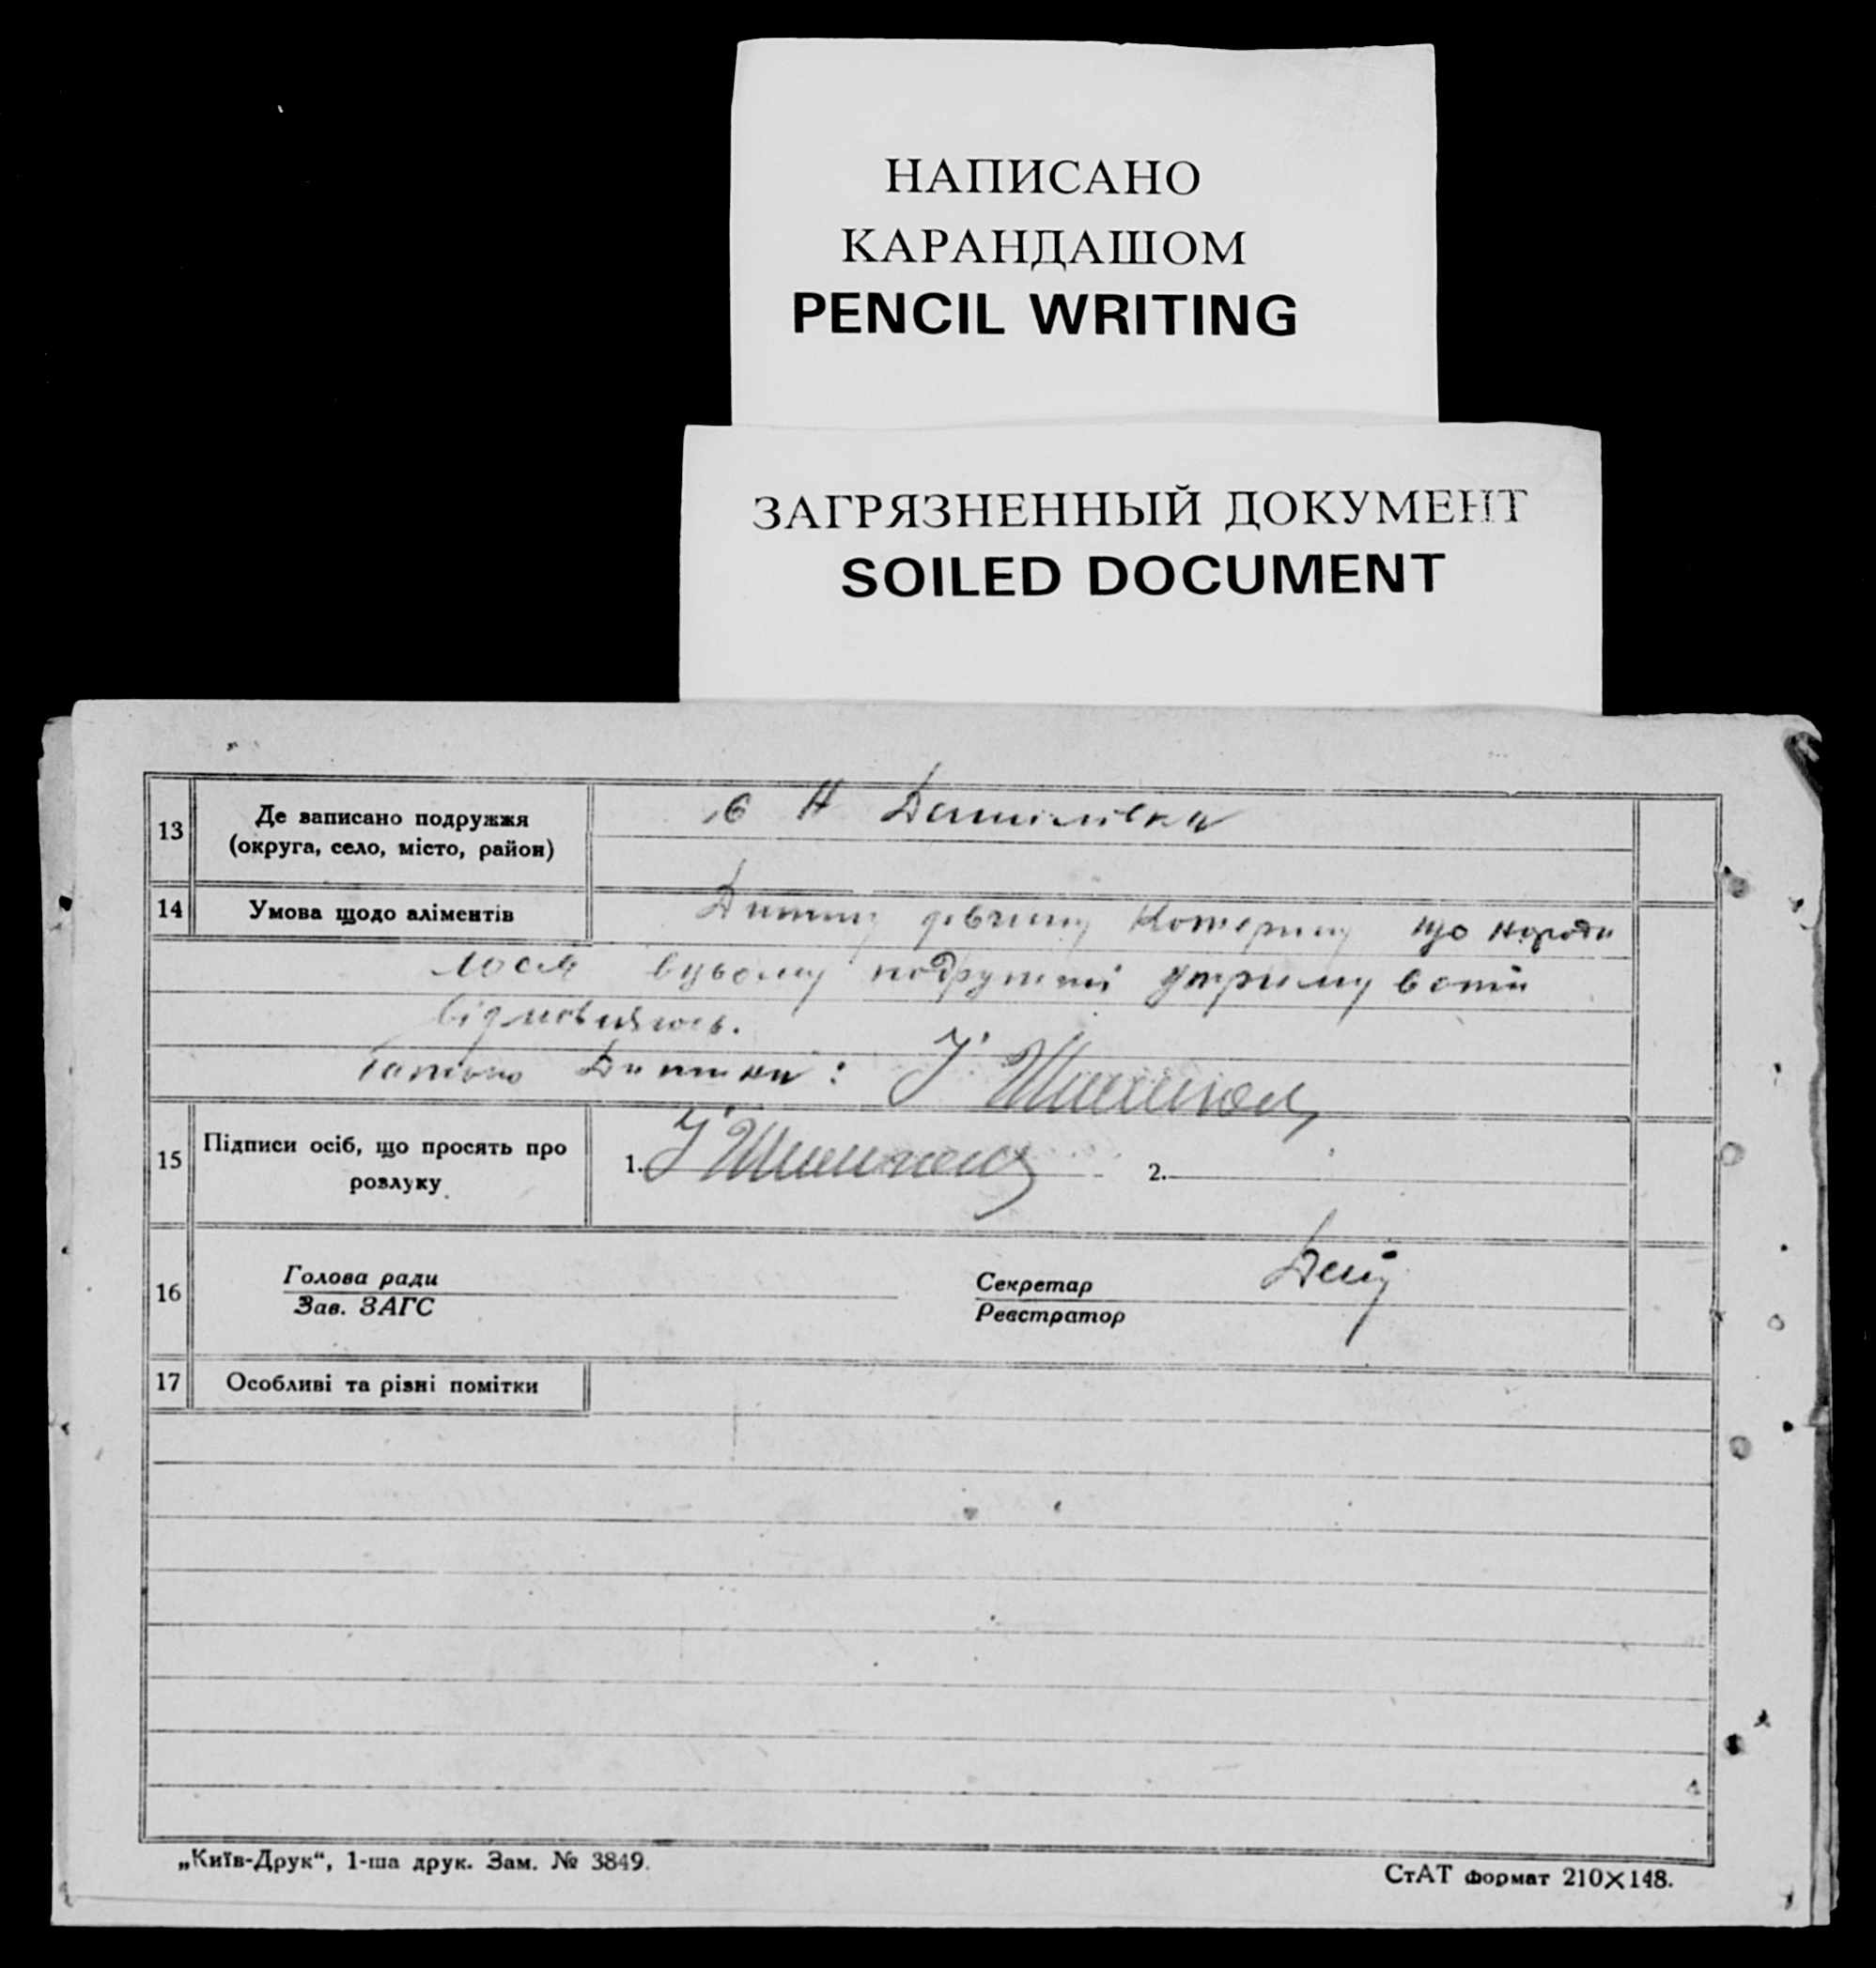 НАПИСАНО
КАРАНДАШОМ
PENCIL WRITING
ЗАГРЯЗНЕННЫЙ ДОКУМЕНТ
SOILED DOCUMENT
13 Де записано подружжя
(округа, село, місто, район)
14 Умова щодо аліментів
Дитину дівчину Катерину що народи
лося вцьому подружжі утримувати
відмовляюсь.
Батько Дитини:
15 Підписи осіб, що просять про
розлуку
1. 2.
16 Голова ради Секретар
Зав. ЗАГС Реєстратор
17 Особливі та різні помітки
„Київ-Друк“, 1-ша друк. Зам. № 3849.
СтАТ формат 210×148.